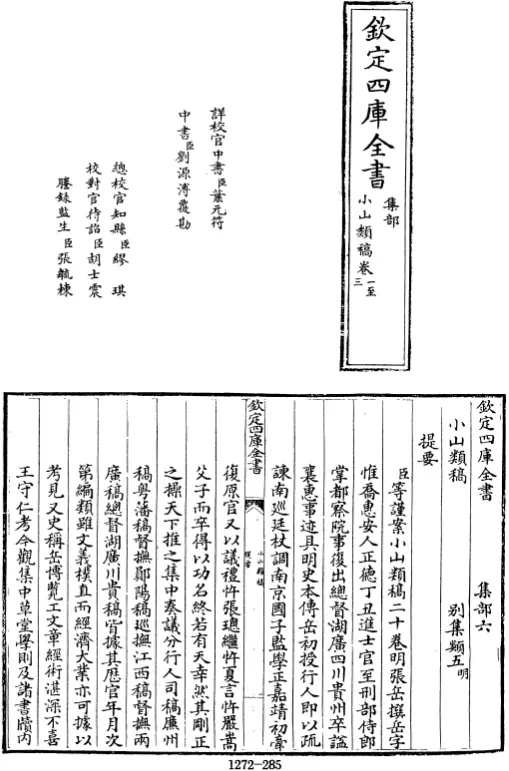 欽定四庫全書
集部
小山類稿卷一至三
詳校官中書臣葉元符
中書臣劉源溥覆勘
總校官知縣臣繆琪
校對官待詔臣胡士震
謄錄監生臣張毓棟
欽定四庫全書
集部六
小山類稿
別集類五明
提要
臣等謹案小山類稿二十卷明張岳撰岳字
惟喬惠安人正德丁丑進士官至刑部侍郎
掌都察院事復出總督湖廣四川貴州卒諡
襄惠事迹具明史本傳岳初授行人即以疏
諫南巡廷杖調南京國子監學正嘉靖初牽
欽定四庫全書
小山類稿
提要
復原官又以議禮忤張璁繼忤夏言忤嚴嵩
父子而卒得以功名終若有天幸然其剛正
之操天下推之集中奏議分行人司稿廉州
稿粤藩稿督撫鄖陽稿巡撫江西稿督撫兩
廣稿總督湖廣川貴稿皆據其歴官年月次
第編類雖文義樸直而經濟大業亦可據以
考見又史稱岳博覽工文章經術湛深不喜
王守仁考今觀集中草堂學則及諸書牘内
1272-285